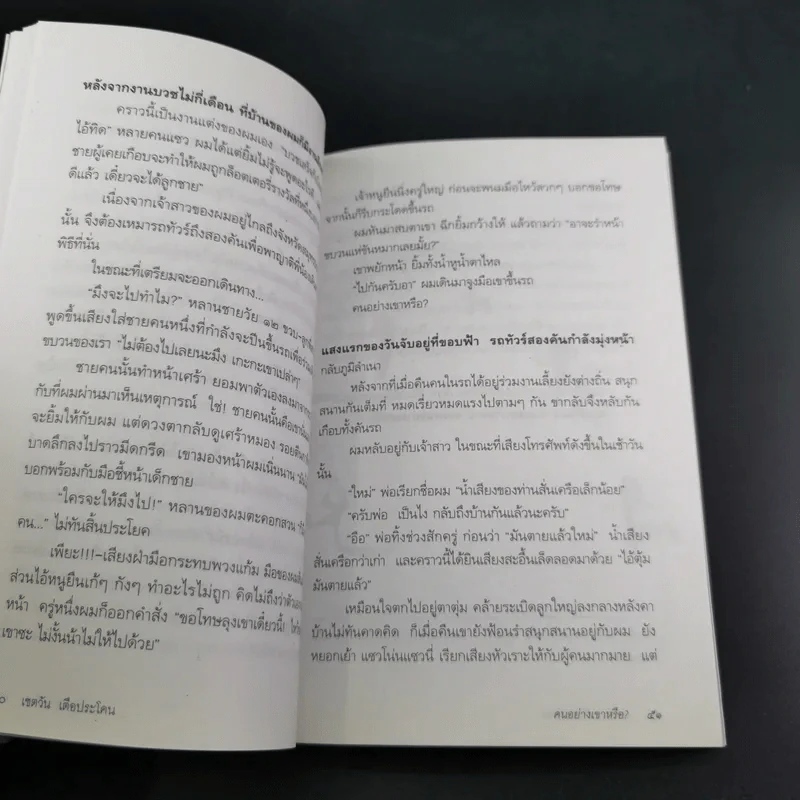 หลังจากงานบวชไม่กี่เดือน ที่บ้านของผมก็มีงาน
คราวนี้เป็นงานแต่งของผมเอง "บวชเสร็จ
ไอ้ทิด" หลายคนแซว ผมได้แต่ยิ้มไม่รู้จะพูดอะไรดี
ชายผู้เคยเกือบจะทำให้ผมถูกล็อตเตอรี่รางวัลที่หนึ่ง
ดีแล้ว เดี๋ยวจะได้ลูกชาย"
เนื่องจากเจ้าสาวของผมอยู่ไกลถึงจังหวัด
นั้น จึงต้องเหมารถทัวร์ถึงสองคันเพื่อพาญาติพี่น้อง
พิธีที่นั่น
ในขณะที่เตรียมจะออกเดินทาง...
"มึงจะไปทำไม?" หลานชายวัย ๑๒ ขวบ-ลูก
พูดขึ้นเสียงใส่ชายคนหนึ่งที่กำลังจะปีนขึ้นรถเพื่อร่วม
ขบวนของเรา "ไม่ต้องไปเลยนะมึง เกะกะเขาเปล่าๆ"
ชายคนนั้นทำหน้าเศร้า ยอมพาตัวเองลงมาจาก
กับที่ผมผ่านมาเห็นเหตุการณ์ ใช่! ชายคนนั้นคือเขา
จะยิ้มให้กับผม แต่ดวงตากลับดูเศร้าหมอง รอยตีน
บาดลึกลงไปราวมีดกรีด เขามองหน้าผมเนิ่นนาน
บอกพร้อมกับมือชี้หน้าเด็กชาย
"ใครจะให้มึงไป!" หลานของผมตะคอกสวน
คน..." ไม่ทันสิ้นประโยค
เพียะ!!!-เสียงฝ่ามือกระทบพวงแก้ม มือของผม
ส่วนไอ้หนูยืนเก้ๆ กังๆ ทำอะไรไม่ถูก คิดไม่ถึงว่าตัวเอง
หน้า ครู่หนึ่งผมก็ออกคำสั่ง "ขอโทษลุงเขาเดี๋ยวนี้!
เขาซะ ไม่งั้นน้าไม่ให้ไปด้วย"
๐ เขตวัน เตือประโคน
เจ้าหนูยืนนิ่งครู่ใหญ่ ก่อนจะพนมมือไหว้สวกๆ บอกขอโทษ
จากนั้นก็รีบกระโดดขึ้นรถ
ผมหันมาสบตาเขา ฉีกยิ้มกว้างให้ แล้วถามว่า "อาจะรำหน้า
ขบวนแห่ขันหมากเลยมั้ย?"
เขาพยักหน้า ยิ้มทั้งน้ำหูน้ำตาไหล
"ไปกันครับอา" ผมเดินมาจูงมือเขาขึ้นรถ
คนอย่างเขาหรือ?
แสงแรกของวันจับอยู่ที่ขอบฟ้า รถทัวร์สองคันกำลังมุ่งหน้า
กลับภูมิลำเนา
หลังจากที่เมื่อคืนคนในรถได้อยู่ร่วมงานเลี้ยงยังต่างถิ่น สนุก
สนานกันเต็มที่ หมดเรี่ยวหมดแรงไปตามๆ กัน ขากลับจึงหลับกัน
เกือบทั้งคันรถ
ผมหลับอยู่กับเจ้าสาว ในขณะที่เสียงโทรศัพท์ดังขึ้นในเช้าวัน
นั้น
"ใหม่" พ่อเรียกชื่อผม "น้ำเสียงของท่านสั่นเครือเล็กน้อย"
"ครับพ่อ เป็นไง กลับถึงบ้านกันแล้วนะครับ"
"อือ" พ่อทิ้งช่วงสักครู่ ก่อนว่า "มันตายแล้วใหม่" น้ำเสียง
สั่นเครือกว่าเก่า และคราวนี้ได้ยินเสียงสะอื้นเล็ดลอดมาด้วย "ไอ้ตุ้ม
มันตายแล้ว"
เหมือนใจตกไปอยู่ตาตุ่ม คล้ายระเบิดลูกใหญ่ลงกลางหลังคา
บ้านไม่ทันคาดคิด ก็เมื่อคืนเขายังฟ้อนรำสนุกสนานอยู่กับผม ยัง
หยอกเย้า แซวโน่นแซวนี่ เรียกเสียงหัวเราะให้กับผู้คนมากมาย แต่
คนอย่างเขาหรือ? ๕๑